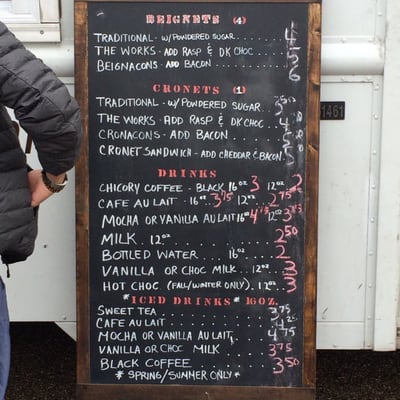 BEIGNETS (4)
TRADITIONAL - W/ POWDERED SUGAR........ 4
THE WORKS - ADD RASP & DK CHOC.... 5
BEIGNACONS - ADD BACON........ 6
CRONETS (1)
TRADITIONAL - W/ POWDERED SUGAR.
THE WORKS - ADD RASP & DK CHOC....
CRONACONS - ADD BACON.......
CRONET SANDWICH - ADD CHEDDAR & BACON.
DRINKS
CHICORY COFFEE - BLACK 16oz 3 12oz 2
CAFE AU LAIT - 16oz 3.75 12oz 2.75
MOCHA OR VANILLA AU LAIT 16oz 4.75 12oz 3.75
MILK. 12oz............ 2.50
BOTTLED WATER... 16oz.... 2
VANILLA OR CHOC MILK.. 12oz.. 3
HOT CHOC (FALL/WINTER ONLY). 12oz 3
*ICED DRINKS* 16 OZ.
SWEET TEA............ 3.75
CAFE AU LAIT........ 4.25
MOCHA OR VANILLA AU LAIT. 4.75
VANILLA OR CHOC MILK.... 3.75
BLACK COFFEE.......... 3.50
* SPRING/SUMMER ONLY *
1461